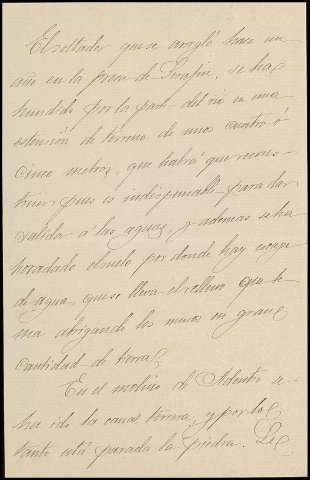 El soltador que se arregló hace un
año en la presa de Serafin, se ha
hundido por la parte del rio en una
estensión de terreno de unos cuatro ó
cinco metros, que habrá que recons-
truir, pues es indispensable para dar
salida á las aguas, y ademas se ha
horadado el suelo por donde hay escape
de agua, que se lleva el relleno que te-
nia abrigando los muros en gran
cantidad de tierra.
En el molino de Adentro se
ha ido la canal tercera, y por lo
tanto está parada la piedra. Le